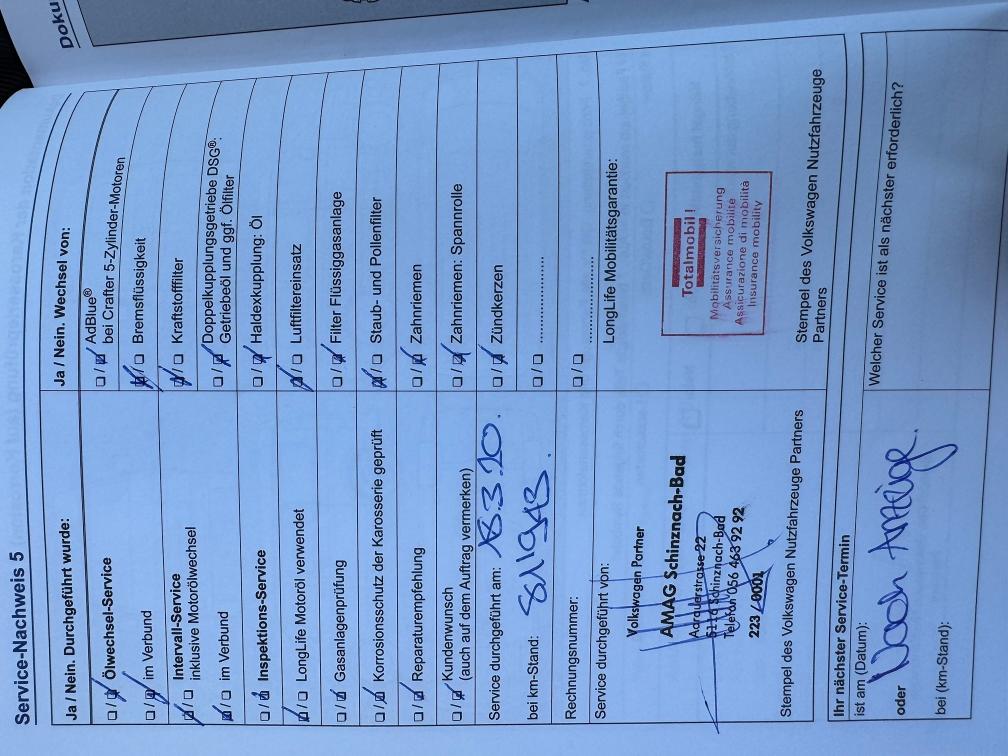 Doku
Service-Nachweis 5
Ja / Nein. Durchgeführt wurde:
□ / □ Ölwechsel-Service
□ / □ im Verbund
Intervall-Service
□ / □ inklusive Motorölwechsel
□ / □ im Verbund
□ / □ Inspektions-Service
□ / □ LongLife Motoröl verwendet
□ / □ Gasanlagenprüfung
□ / □ Korrosionsschutz der Karosserie geprüft
□ / □ Reparaturempfehlung
□ / □ Kundenwunsch
(auch auf dem Auftrag vermerken)
Service durchgeführt am: 18.3.20.
bei km-Stand:
Rechnungsnummer:
Service durchgeführt von:
Volkswagen Partner
AMAG Schinznach-Bad
Aarauerstrasse 22
5116 Schinznach-Bad
Telefon 056 463 92 92
223 / 0001
Stempel des Volkswagen Nutzfahrzeuge Partners
Ja / Nein. Wechsel von:
□ / □ AdBlue®
bei Crafter 5-Zylinder-Motoren
□ / □ Bremsflüssigkeit
□ / □ Kraftstofffilter
Doppelkupplungsgetriebe DSG®:
□ / □ Getriebeöl und ggf. Ölfilter
□ / □ Haldexkupplung: Öl
□ / □ Luftfiltereinsatz
□ / □ Filter Flüssiggasanlage
□ / □ Staub- und Pollenfilter
□ / □ Zahnriemen
□ / □ Zahnriemen: Spannrolle
□ / □ Zündkerzen
□ / □ ....................
□ / □ ....................
LongLife Mobilitätsgarantie:
Totalmobil!
Mobilitätsversicherung
Assurance mobilité
Assicurazione di mobilità
Insurance mobility
Stempel des Volkswagen Nutzfahrzeuge
Partners
Ihr nächster Service-Termin
ist am (Datum):
oder Nach Anzeige.
bei (km-Stand):
Welcher Service ist als nächster erforderlich?